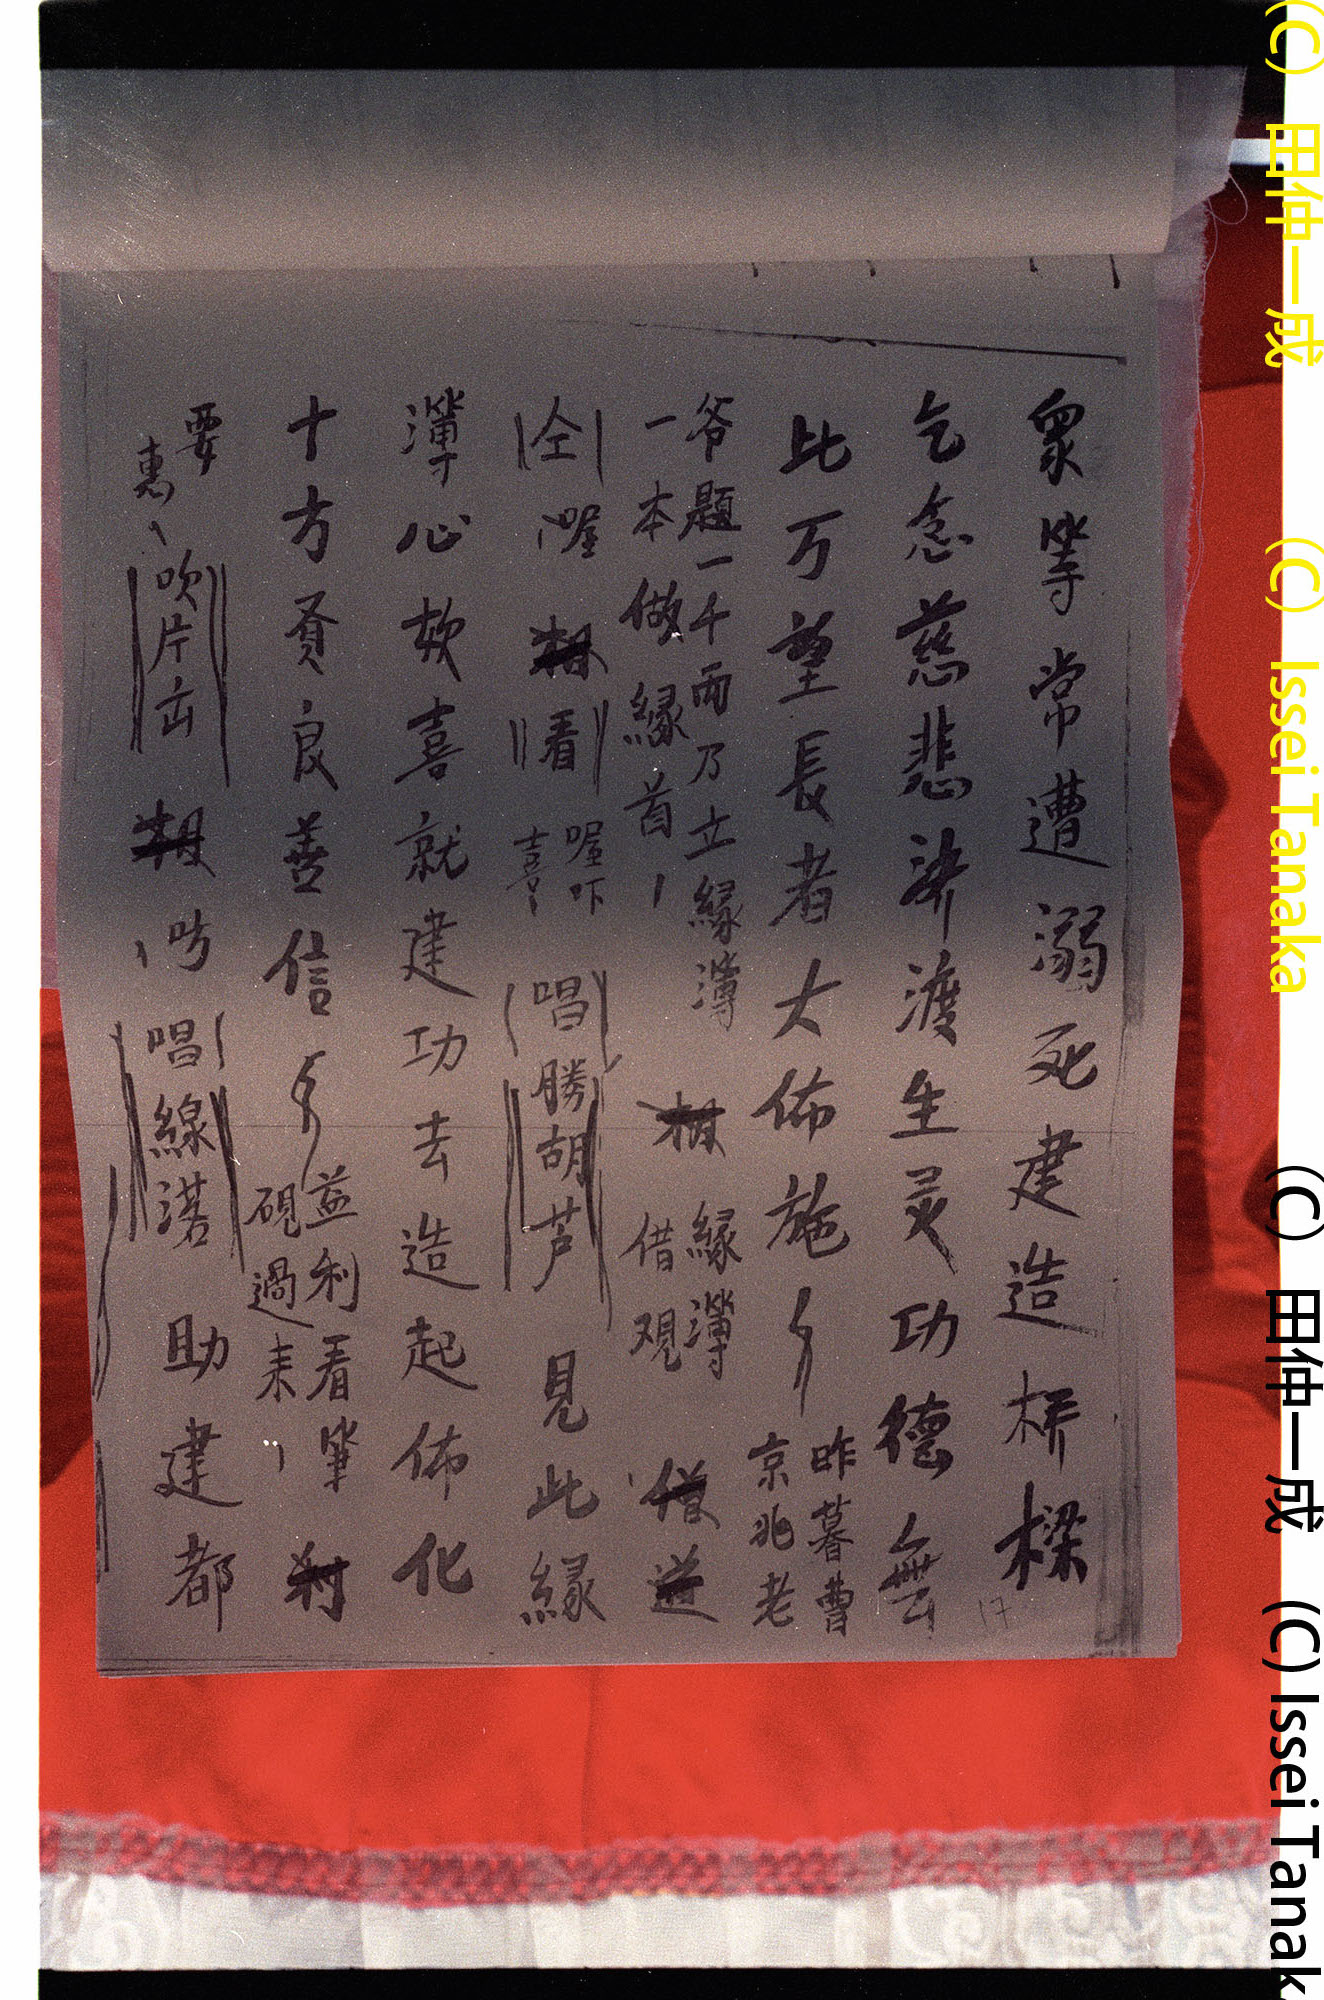 衆等常遭溺死建造桥樑
乞念慈悲済渡生灵功德無
比万望長者大佈施
昨暮曹
京兆老
爷題一千两乃立縁簿
一本做縁首
縁簿
借观
仝 喔 看
喔吓
喜
唱勝胡芦 見此縁
簿心欢喜就建功去造起佈化
十方贤良善信
並利看筆
硯過来
要
惠
吹片云
唱線渃 助建都
17
(C) 田仲一成 (C) Issei Tanaka (C) 田仲一成 (C) Issei Tanak